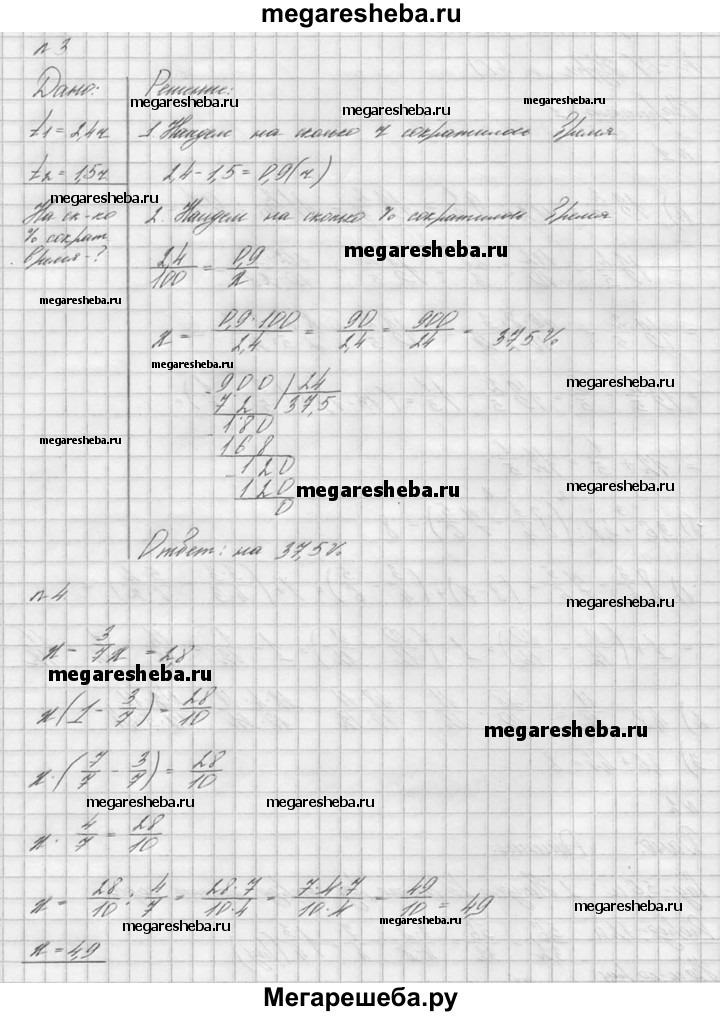 megaresheba.ru
n 3
Дано: Решение:
megaresheba.ru megaresheba.ru megaresheba.ru
t₁ = 2,4ч 1. Найдем на сколько ч сократилось время
t₂ = 1,5ч 2,4 - 1,5 = 0,9 (ч)
megaresheba.ru
На ск-ко 2. Найдем на сколько % сократилось время
% сократ.
время - ? 2,4/100 = 0,9/x
megaresheba.ru
megaresheba.ru
x = 0,9·100/2,4 = 90/2,4 = 900/24 = 37,5%
megaresheba.ru
megaresheba.ru
900 | 24
72 37,5
180
168
megaresheba.ru
120
120
0
megaresheba.ru megaresheba.ru
Ответ: на 37,5%
n 4
megaresheba.ru
x - 3/7 x = 2,8
megaresheba.ru
x(1 - 3/7) = 28/10
megaresheba.ru
x·(7/7 - 3/7) = 28/10
megaresheba.ru megaresheba.ru
x · 4/7 = 28/10
x = 28/10 : 4/7 = 28·7/10·4 = 7·4·7/10·4 = 49/10 = 4,9
megaresheba.ru megaresheba.ru megaresheba.ru
x = 4,9
Мегарешеба.ру